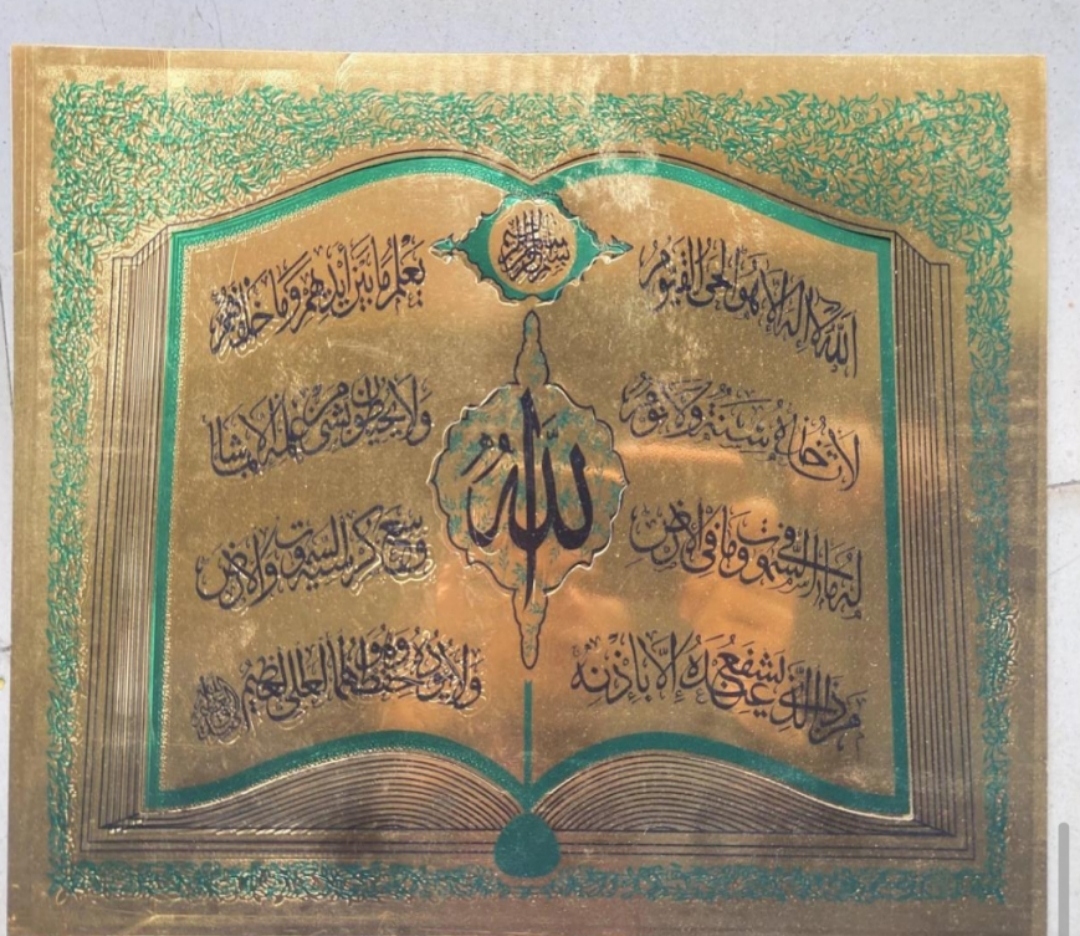 بسم الله الرحمن الرحيم
الله لا اله الا هو الحي القيوم
لا تأخذه سنة ولا نوم
له ما في السموت وما في الارض
من ذا الذي يشفع عنده إلا بإذنه
الله
يعلم ما بين أيديهم وما خلفهم
ولا يحيطون بشيء من علمه الا بما شاء
وسع كرسيه السموت والارض
ولا يؤده حفظهما وهو العلي العظيم